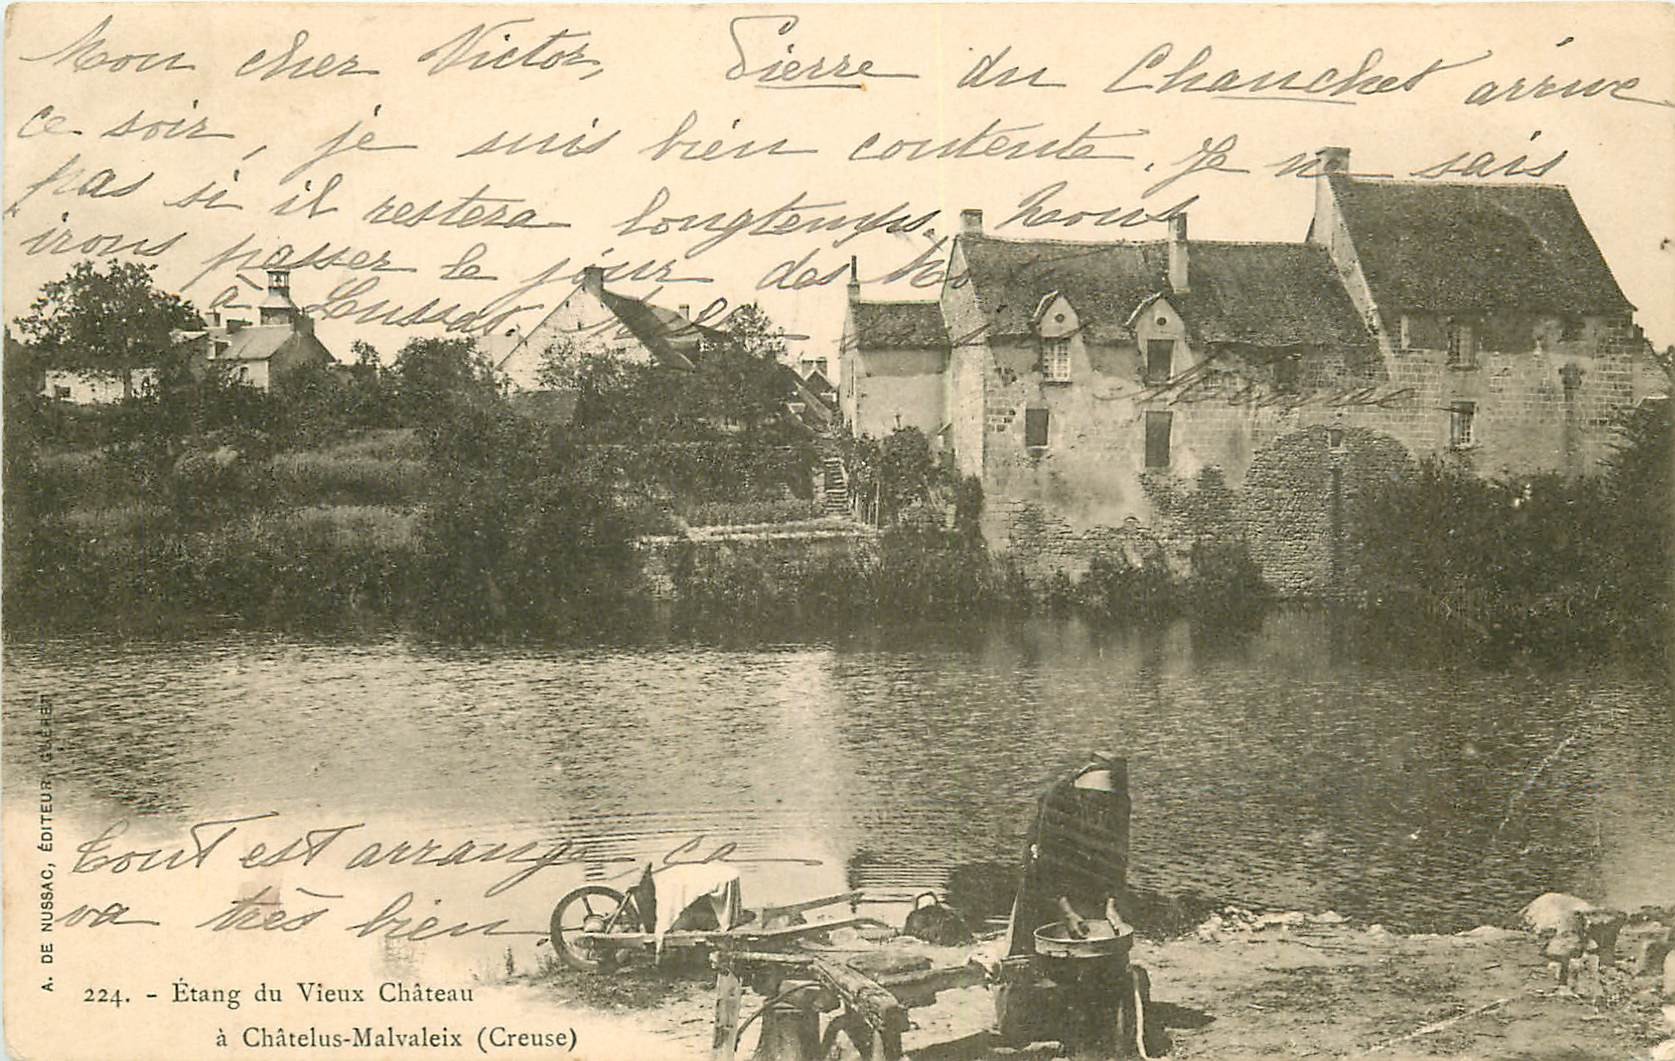 Mon cher Victor, Pierre du Chanchet arrive
ce soir, je suis bien contente. Je ne sais
pas si il restera longtemps. Nous
irons passer le jour des
à Lussat
Tout est arrangé ça
va très bien
A. DE NUSSAC, ÉDITEUR GUÉRET
224. - Étang du Vieux Château
à Châtelus-Malvaleix (Creuse)